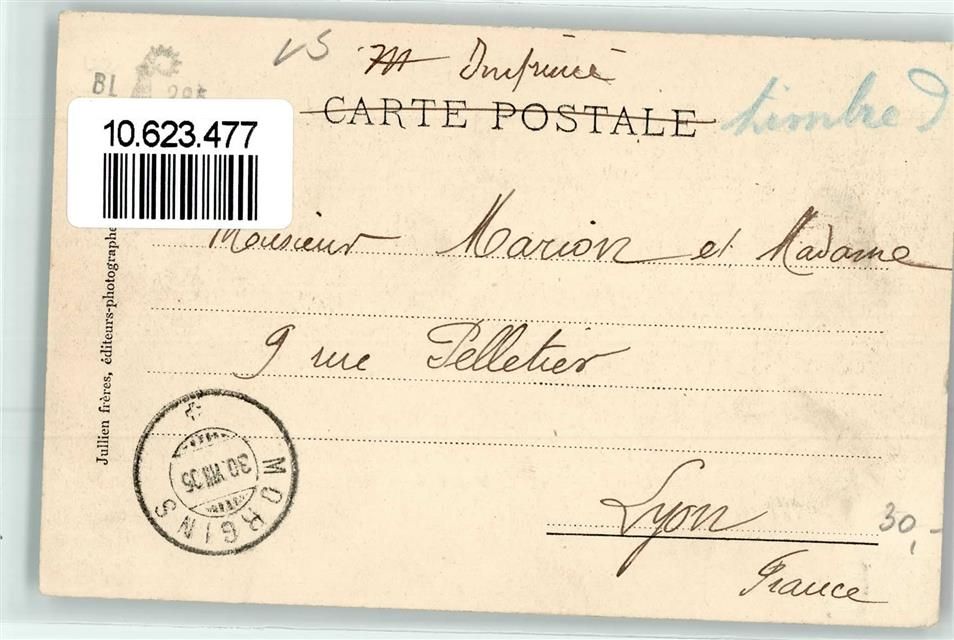 VS
Imprimé
BL
CARTE POSTALE
timbre
10.623.477
Monsieur Marion et Madame
9 rue Pelletier
Jullien frères, éditeurs-photographe
MORGINS
30.VIII.05
Lyon
30,-
France